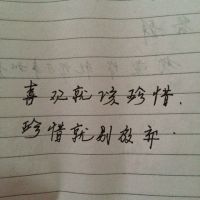 喜欢就该珍惜.
珍惜就别放弃.